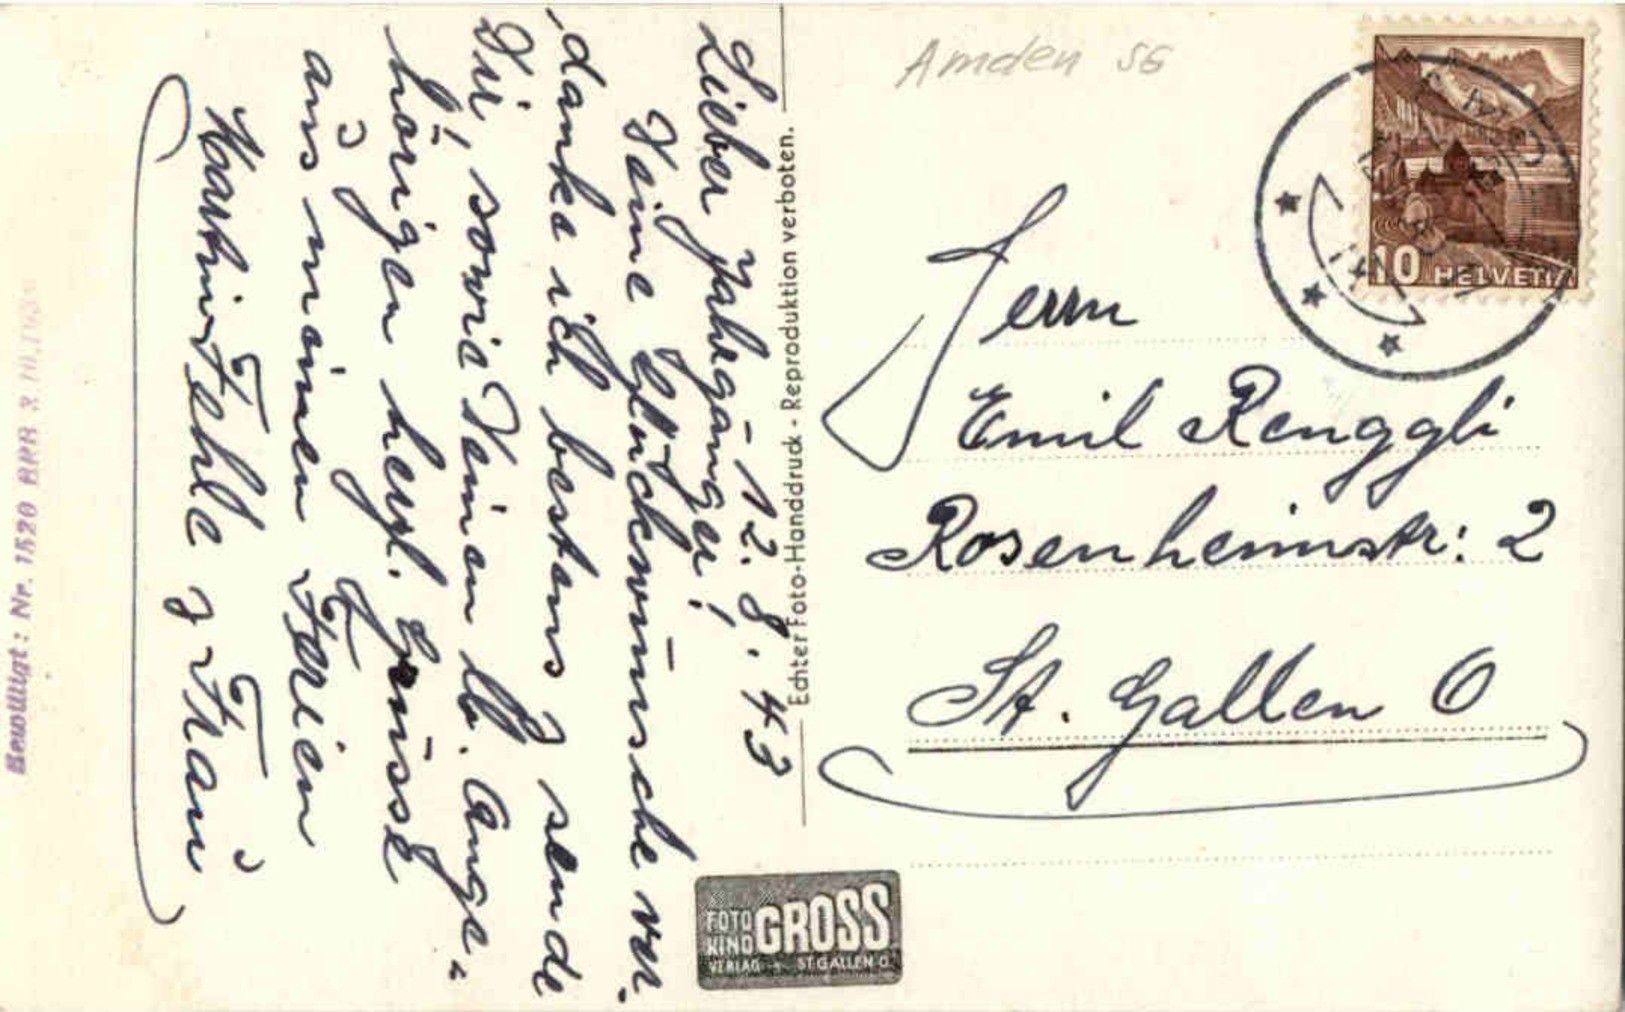 12. 8. 43
Lieber Jahrgänger!
Deine Glückwünsche ver-
danke ich bestens & sende
Dir, sowie Deinen lb. Ange-
hörigen herzl. Grüsse
aus meinen Ferien
Fehle & Frau
Echter Foto-Handdruck - Reproduktion verboten.
Bewilligt: Nr. 1520 BRB 3.10.1939
Amden SG
10 HELVETIA
Herrn
Emil Renggli
Rosenheimstr: 2
St. Gallen O
FOTO
KINO GROSS
VERLAG ST. GALLEN O.